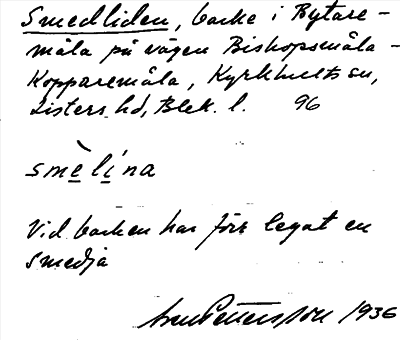 Smedliden, backe i Bytare-
måla på vägen Bishopsmåla -
Kopparemåla, Kyrkhults sn,
Listers hd, Blek. l. 96
smèlína
Vid backen har förr legat en
smedja
Pettersson 1936